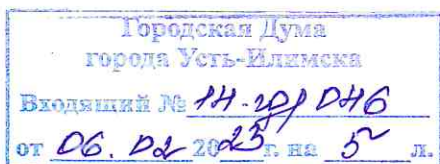 Городская Дума
города Усть-Илимска
Входящий №
от 06.02 2025 г. на 5 л.